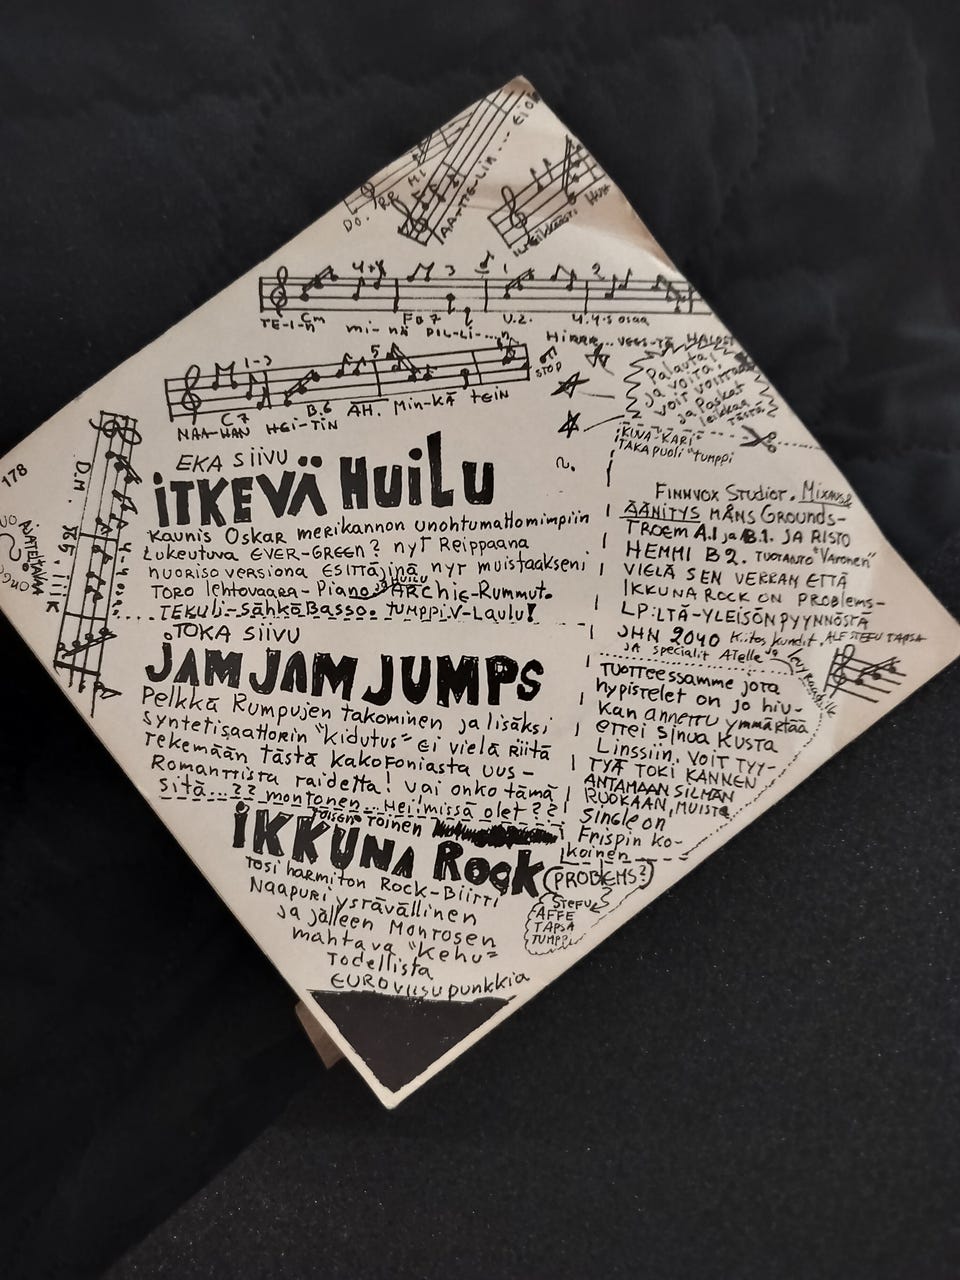 DO. RE MI
AA-TTE-LIN.... EI OLE
TE-I-N Cm mi-nä PIL-LI-...n
4+4 3 1 2
F#7 U.2. 4.4.5 osaa
HIRRR... VEES-TÄ HALPST
1-3 5
STOP
C.7 B.6
NAA-MAN HEI-TIN ÄH. Min-KÄ tein
Palauta!
ja voita!
voit voittaa
ja Paskat
leikkaa
TÄSTÄ
KUVA "KARI"
TAKAPUOLI "TUMPPI
178
AJATELTAVAA
D.M.
EKA SIIVU
ITKEVÄ HUILU
Kaunis Oskar merikannon unohtumattomimpiin
Lukeutuva EVER-GREEN? nyT Reippaana
nuoriso versiona ESITTÄJINÄ nyt muistaakseni
Toro lehtovaara-Piano ja HUILU ARchie-Rummut.
....TEKULI-SähkäBasso. tUMPPI.V-Laulu!
TOKA SIIVU
JAM JAM JUMPS
Pelkkä Rumpujen takominen ja lisäksi
Syntetisaattorin "kidutus" ei vielä Riitä
Tekemään Tästä kakofoniasta uus-
Romanttista raidetta! vai onko tämä
sitä...?? montonen...Hei!missä olet??
Toisen Toinen
IKKUNA ROCK
Tosi harmiton Rock-Biirti
Naapuri ystävällinen
ja jälleen Monrosen
mahtava "Kehu"
Todellista
EUROviisupunkkia
FINNVOX Studiot. Mixaus &
ÄÄNITYS MÅNS GROUNDS-
TROEM A.1 ja B.1. JA RISTO
HEMMI B2. TUOTANTO "Varonen"
VIELÄ SEN VERRAN ETTÄ
IKKUNA ROCK ON PROBLEMS-
LP:LTÄ-YLEISÖN PYYNNÖSTÄ
JHN 2040 Kiitos kundit. ALF STEFU TAPSA
JA Specialit ATelle ja
TUOTTEESSAMME jota
hypistelet on jo hiu-
kan annettu ymmärtää
ETTEI SINUA KUSTA
LINSSIIN. VOIT TYY-
TYÄ TOKI KANNEN
ANTAMAAN SILMÄN
RUOKAAN, MUISTA
Single on
Frispin Ko-
koinen
PROBLEMS?
STEFU
AFFE
TAPSA
TUMPPI